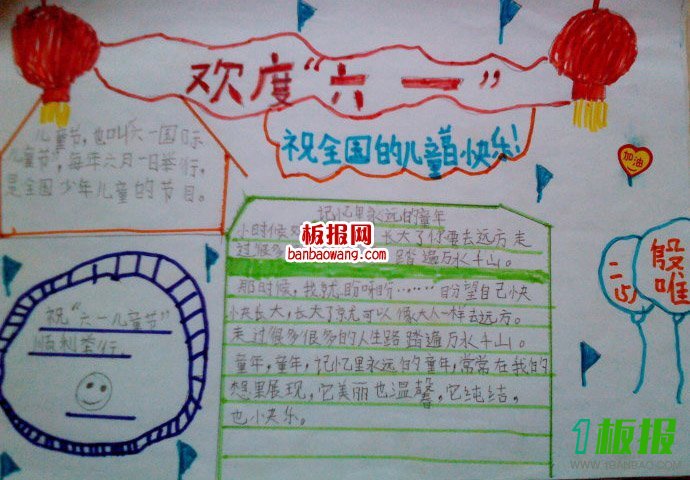 欢度“六一”
祝全国的儿童节快乐!
儿童节,也叫六一国际
儿童节,每年六月一日举行,
是全国少年儿童的节目。
加油
记忆里永远的童年
小时候 长大了你要去远方 走
过很多 踏遍万水千山。
板报网
banbaowang.com
那时候,我就盼呀盼……盼望自己快
快长大,长大了就可以像大人一样去远方。
走过很多很多的人生路 踏遍万水千山。
童年,童年,记忆里永远的童年,常常在我的
想里展现,它美丽也温馨,它纯结,
也快乐。
祝“六一儿童节”
顺利举行。
1板报
WWW.1BANBAO.COM